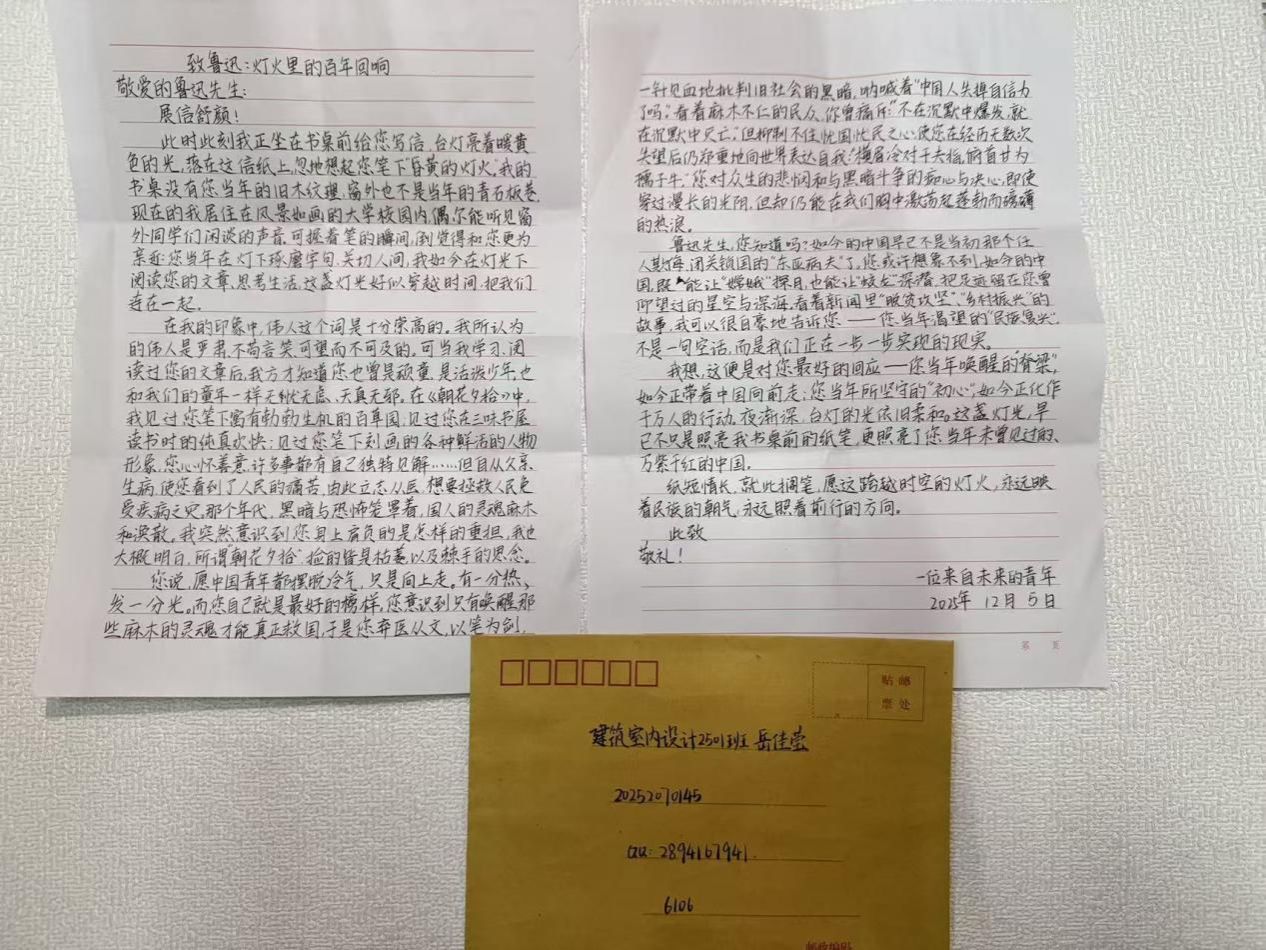 致鲁迅：灯火里的百年回响
敬爱的鲁迅先生：
展信舒颜！
此时此刻我正坐在书桌前给您写信，台灯亮着暖黄
色的光，落在这信纸上，忽地想起您笔下“昏黄的灯火”。我的
书桌没有您当年的旧木纹理，窗外也不是当年的青石板巷，
现在的我居住在风景如画的大学校园内，偶尔能听见窗
外同学们闲谈的声音，可握着笔的瞬间，倒觉得和您更为
亲近：您当年在灯下琢磨字句，关切人间，我如今在灯光下
阅读您的文章、思考生活，这盏灯光好似穿越时间，把我们
连在一起。
在我的印象中，伟人这个词是十分崇高的。我所认为
的伟人是严肃、不苟言笑、可望而不可及的。可当我学习、阅
读过您的文章后，我方才知道您也曾是顽童，是活泼少年，也
和我们的童年一样无忧无虑、天真无邪，在《朝花夕拾》中，
我见过您笔下富有勃勃生机的百草园；见过您在三味书屋
读书时的纯真欢快；见过您笔下刻画的各种鲜活的人物
形象，您心怀善意，许多事都有自己独特见解……但自从父亲
生病，使您看到了人民的痛苦，由此立志从医，想要拯救人民免
受疾病之灾，那个年代，黑暗与恐怖笼罩着，国人的灵魂麻木
和涣散。我突然意识到您身上肩负的是怎样的重担，我也
大概明白，所谓“朝花夕拾”，捡的皆是枯萎，以及棘手的思念。
您说，愿中国青年都摆脱冷气，只是向上走。有一分热、
发一分光。而您自己就是最好的榜样，您意识到只有唤醒那
些麻木的灵魂才能真正救国，于是您弃医从文，以笔为剑，
一针见血地批判旧社会的黑暗，呐喊着“中国人失掉自信力
了吗”。看着麻木不仁的民众，你曾痛斥：“不在沉默中爆发，就
在沉默中灭亡”。但抑制不住忧国忧民之心使您在经历无数次
失望后仍郑重地向世界表达自我：“横眉冷对千夫指，俯首甘为
孺子牛。”您对众生的悲悯和与黑暗斗争的痴心与决心，即使
穿过漫长的光阴，但却仍能在我们胸中激荡起蓬勃而磅礴
的热浪。
鲁迅先生，您知道吗？如今的中国早已不是当初那个任
人欺侮、闭关锁国的“东亚病夫”了，您或许想象不到，如今的中
国，既能让“嫦娥”探月，也能让“蛟龙”深潜，把足迹留在您曾
仰望过的星空与深海，看着新闻里“脱贫攻坚”、“乡村振兴”的
故事，我可以很自豪地告诉您——您当年渴望的“民族复兴”，
不是一句空话，而是我们正在一步一步实现的现实。
我想，这便是对您最好的回应——您当年唤醒的“脊梁”，
如今正带着中国向前走；您当年所坚守的“初心”，如今正化作
千万人的行动。夜渐深，台灯的光依旧柔和。这盏灯光，早
已不只是照亮我书桌前的纸笔，更照亮了您当年未曾见过的、
万紫千红的中国。
纸短情长，就此搁笔，愿这跨越时空的灯火，永远映
着民族的朝气，永远照着前行的方向。
此致
敬礼！
一位来自未来的青年
2025年 12月 5日
第 页
贴 邮
票 处
建筑室内设计2501班 岳佳莹
20252070145
QQ：2894167941.
6106
邮政编码